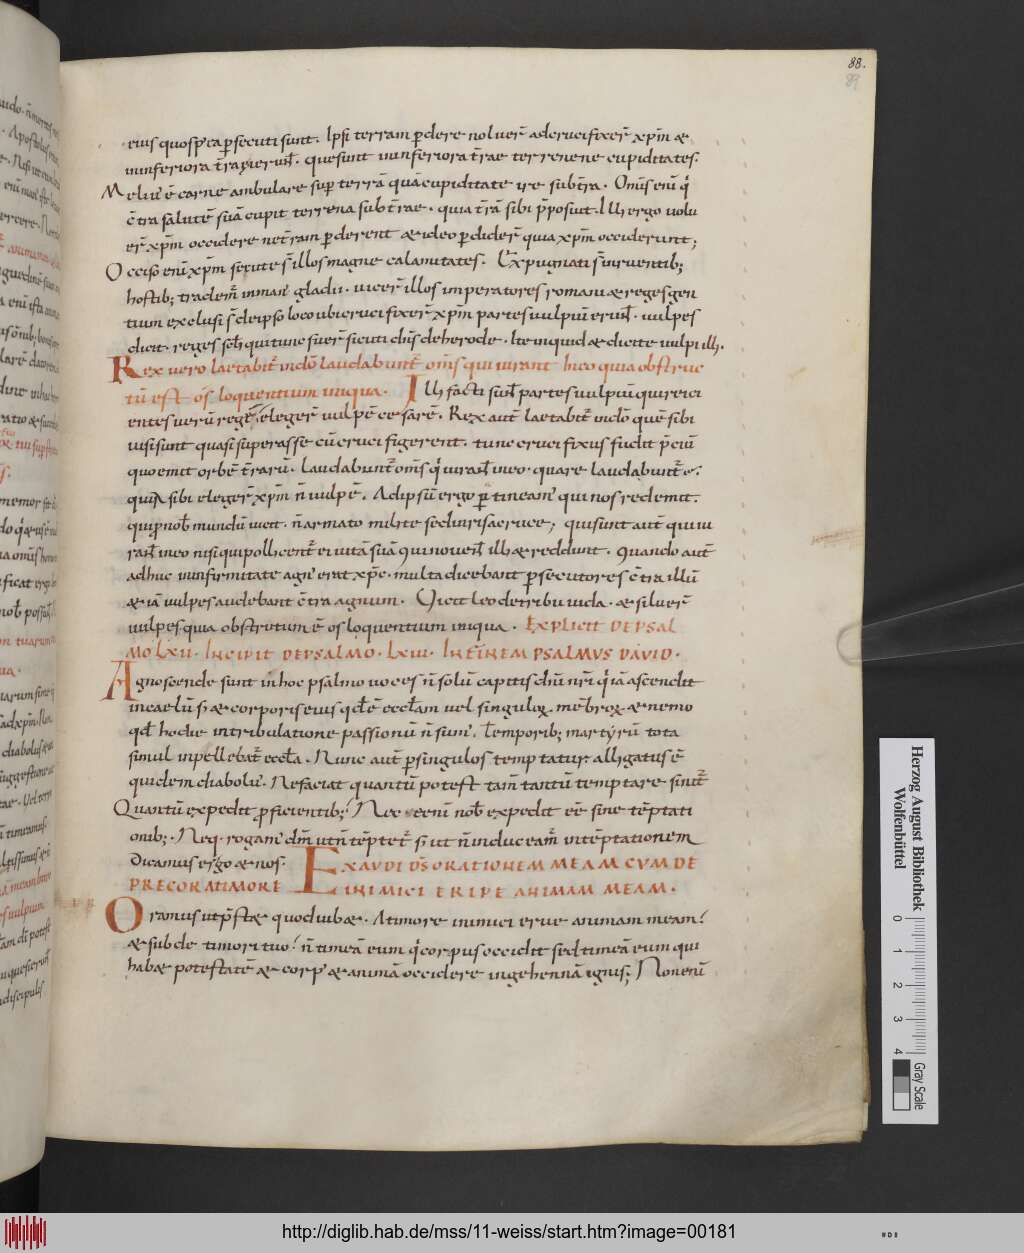 88.
89
eius quos p̄ ea p̄secuti sunt. Ipsi terram p̄dere noluer̄ adcruci fixer̄ xp̄m &
in inferiora t̄rae ierunt̄. que sunt in inferiora t̄rae terrenae cupiditates.
Meliuˀ ē carne ambulare sup̄ terrā quā cupiditate ire subt̄ra. Om̄s enī q̄
c̄tra salutē suā cupit terrena sub t̄rae. quia t̄rā sibi p̄posuit. Illi ergo uolu
er̄ xp̄m occidere ne t̄ram p̄derent & ideo p̄dider̄ quia xp̄m occiderunt;
Occiso enī xp̄m secute s̄ illos magne calamitates. Expugnati s̄ irruentib;
hostib; tradent̄ in manˀ gladii. uicer̄ illos imperatores romani & reges gen
tium exclusi s̄ de ipso loco ubi crucifixer̄ xp̄m partes uulpiū erunt̄. uulpes
dicit. reges scil̄ qui tunc fuer̄ sicuti dn̄s de herode. Ite inquid & dicite uulpi illi.
Rex uero laetabit̄ in dō laudabunt̄ om̄s qui iurant in eo quia obstruc
tū est os̄ loquentium iniqua. Illi facti sunt̄ partes uulpiū qui reici
entes uerū regē, elegerˀ uulpē cesarē. Rex aut̄ laetabit̄ in dō quē sibi
uisi sunt quasi superasse cū cruci figerent. tunc crucifixus fudit p̄ciū
quo emit orbē t̄rarū. laudabunt̄ om̄s q̄ iurant̄ in eo. quare laudabunt̄ e.
quia sibi eleger̄ xp̄m n̄ uulpē. Ad ipsū ergo p̄tineamˀ qui nos redemit.
qui p̄ nob̄ mundū uicit. n̄ armato milite sed inrisa cruce; qui sunt aut̄ qui iu
rant̄ in eo nisi qui pollicent̄ ei uitā suā qui nouent̄ illi & reddunt. Quando aut̄
adhuc in infirmitate agnˀ erat xp̄c. multa dicebant p̄secutores c̄tra illū
& iā uulpes audebant c̄tra agnum. Vicit leo de tribu iuda. & siluer̄
uulpes quia obstrutum ē os loquentium iniqua. EXPLICIT DE PSAL
MO. LXII. INCIPIT DE PSALMO. LXIII. IN FINEM PSALMVS DAVID.
Agnoscende sunt in hoc psalmo uoces n̄ solū capitis dn̄i nr̄i q̄ iā ascendit
in caelū s; & corporis eius qd̄ ē eccl̄am uel singuloꝝ mēbroꝝ & nemo
qd̄ hodie in tribulatione passionū n̄ sumˀ. Temporib; martyrū tota
simul inpellebat̄ eccl̄a. Nunc aut̄ p̄ singulos temptatur. alligatus ē
quidem diabolˀ. Ne faciat quantū potest tam̄ tantū temptare sinit̄
Quantū expedit p̄ficientib; Nec eenī nob̄ expedit eē sine tēptati
onib;. Neq; rogamˀ dm̄ ut n̄ tēptet̄ s; ut n̄ inducam̄ in tēptationem
dicamus ergo & nos. EXAVDI DS̄ ORATIONEM MEAM CVM DE
PRECOR A TIMORE INIMICI ERIPE ANIMAM MEAM.
Oramus ut p̄st& quod iub&. A timore inimici erue animam meam
& subde timori tuo. n̄ timeā eum q̄ corpus occidit sed timeā eum qui
hab& potestatē & corpˀ & animā occidere in gehennā ignis; Non enī
Herzog August Bibliothek
Wolfenbüttel
0 1 2 3 4
Gray Scale
http://diglib.hab.de/mss/11-weiss/start.htm?image=00181